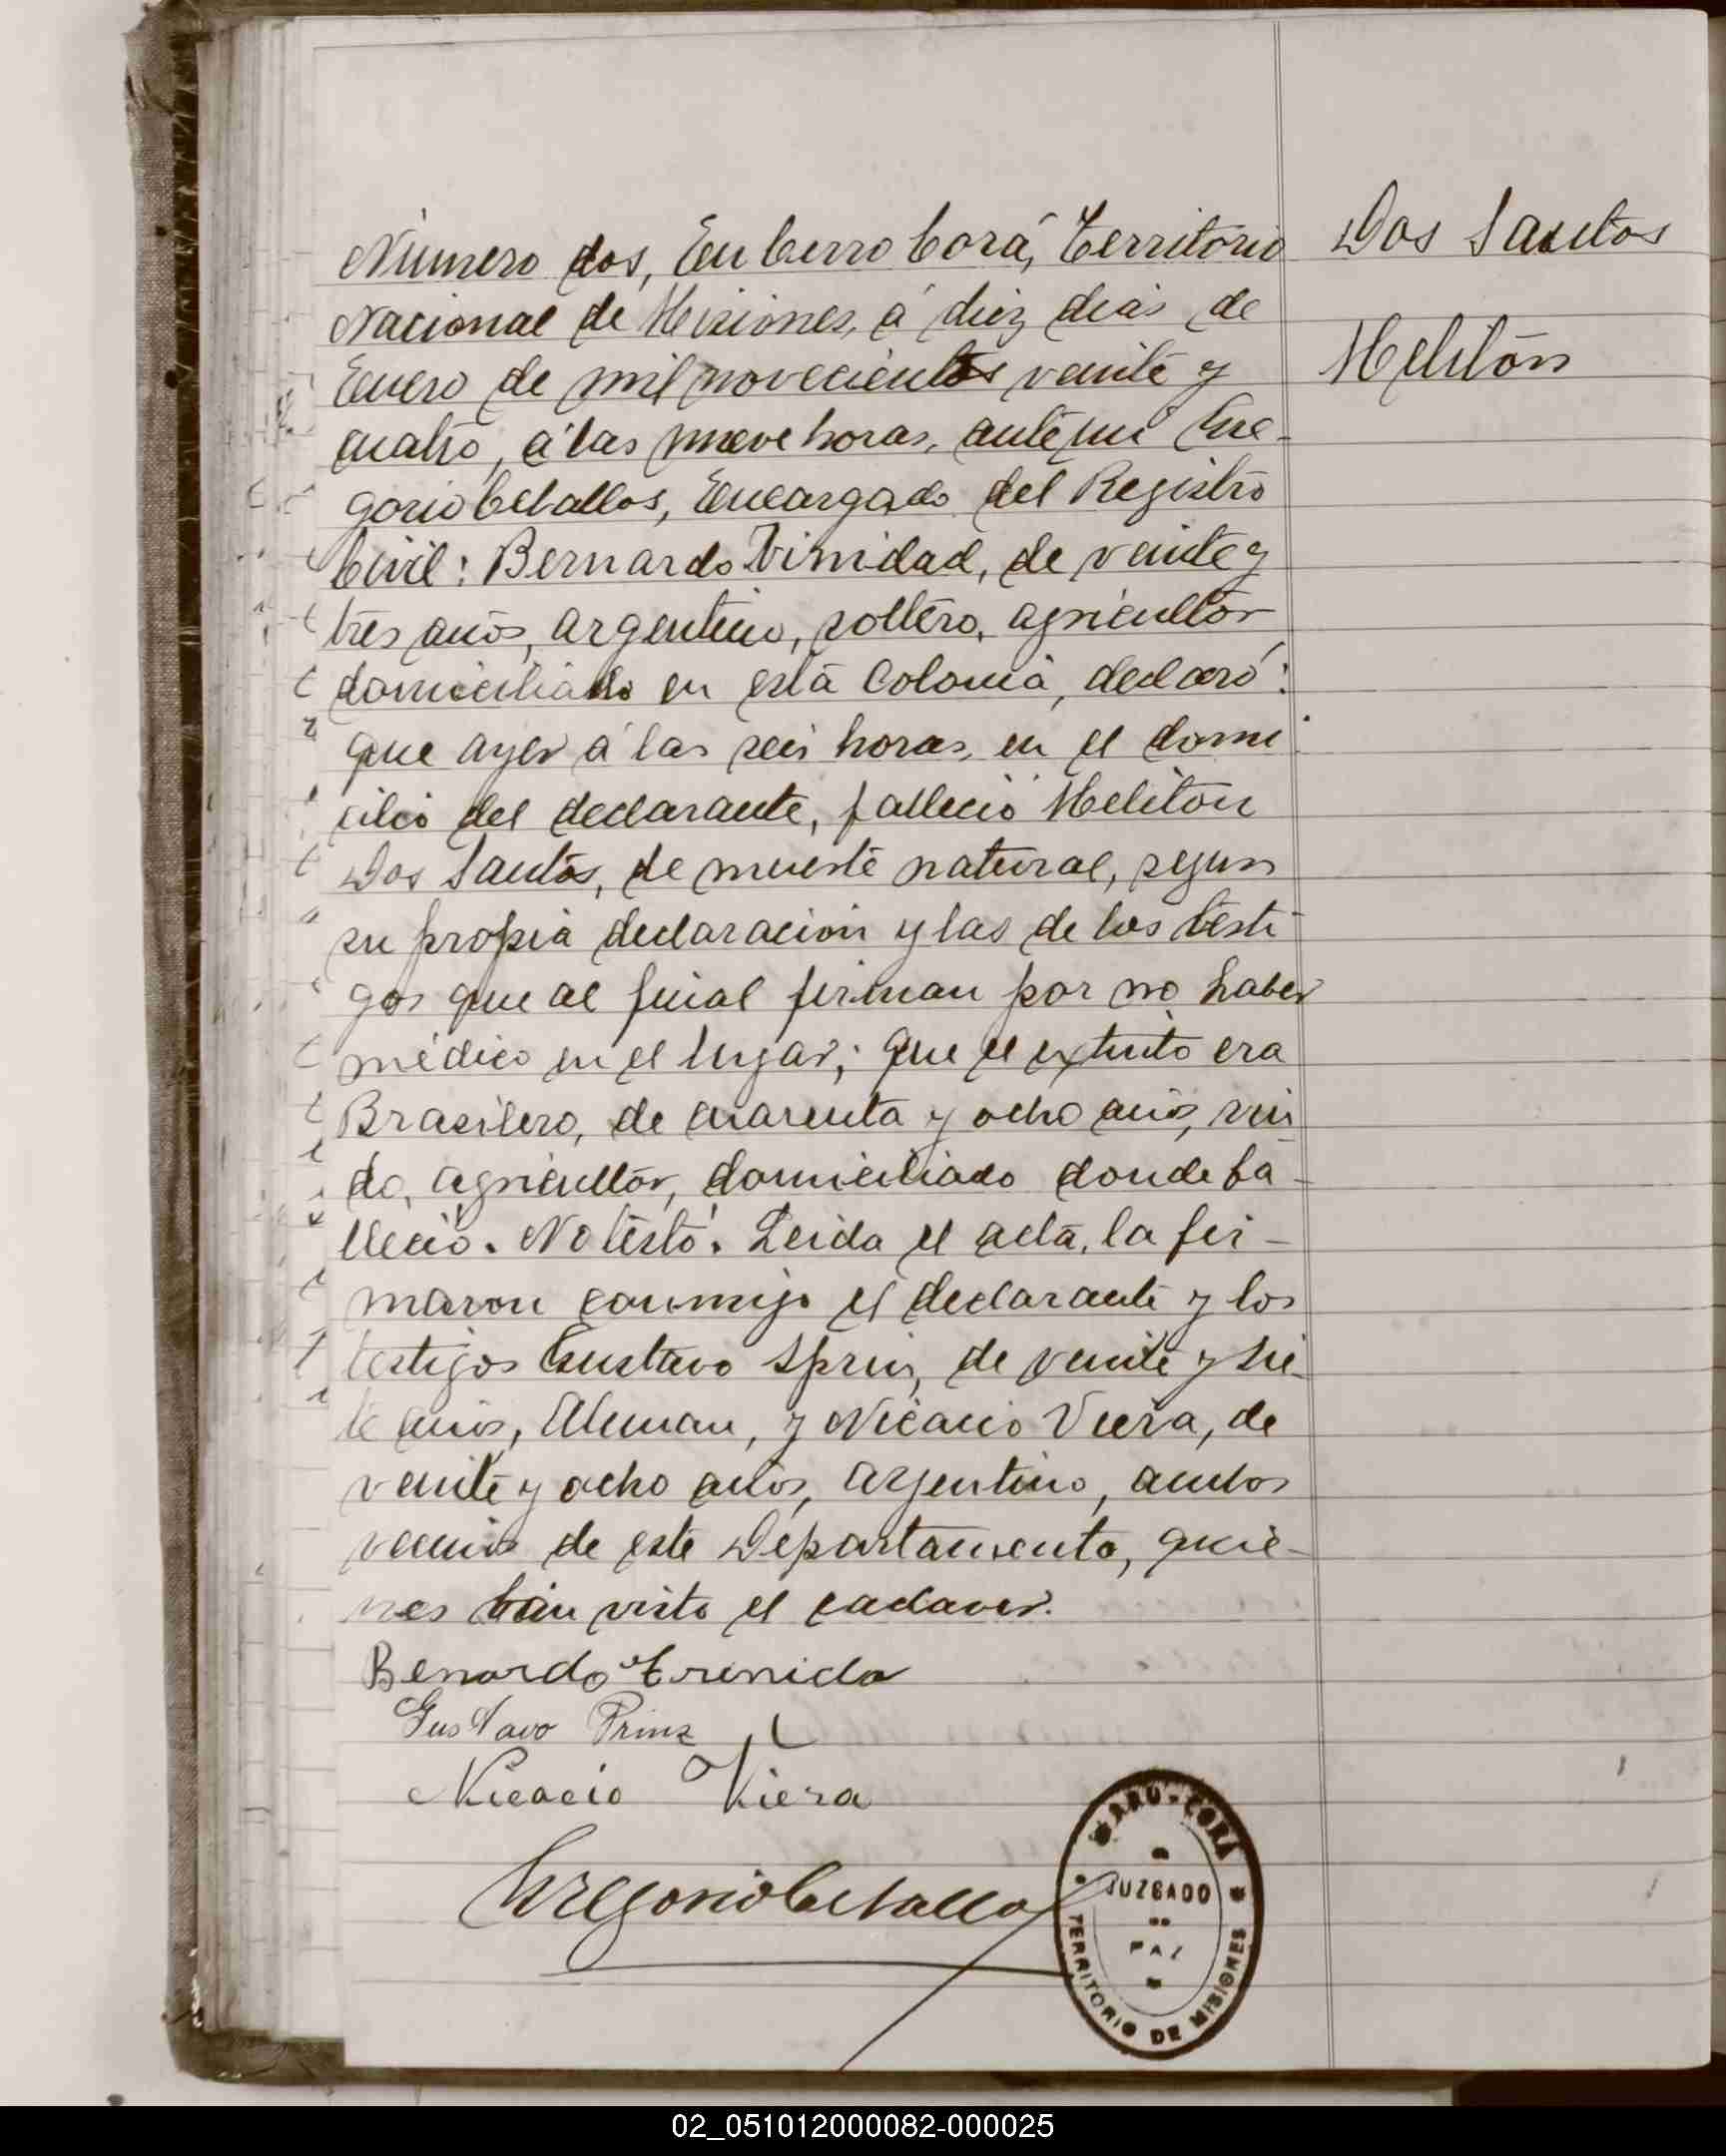 Número dos, En Cerro Corá, Territorio
Nacional de Misiones, á diez dias de
Enero de mil novecientos veinte y
cuatro, á las nueve horas, ante mi Gre-
gorio Ceballos, Encargado del Registro
Civil: Bernardo Trinidad, de veinte y
tres años, argentino, soltero, agricultor
domiciliado en esta Colonia, declaró:
que ayer á las seis horas, en el domi
cilio del declarante, falleció Melitón
Dos Santos, de muerte natural, segun
su propia declaracion y las de los testi
gos que al final firman por no haber
médico en el lugar; que el extinto era
Brasilero, de cuarenta y ocho años, viu
do, agricultor, domiciliado donde fa-
lleció. No testó. Leida el acta, la fir-
maron conmigo el declarante y los
testigos Gustavo Sprin, de veinte y sie-
te años, Aleman, y Nicacio Viera, de
veinte y ocho años, argentino, ambos
vecinos de este Departamento, quie-
nes han visto el cadaver.
Benardo Trenida
Gustavo Prinz
Nicacio Viera
Gregorio Ceballos
Dos Santos
Melitón
CORÁ
JUZGADO
DE
PAZ
TERRITORIO DE MISIONES
02_051012000082-000025